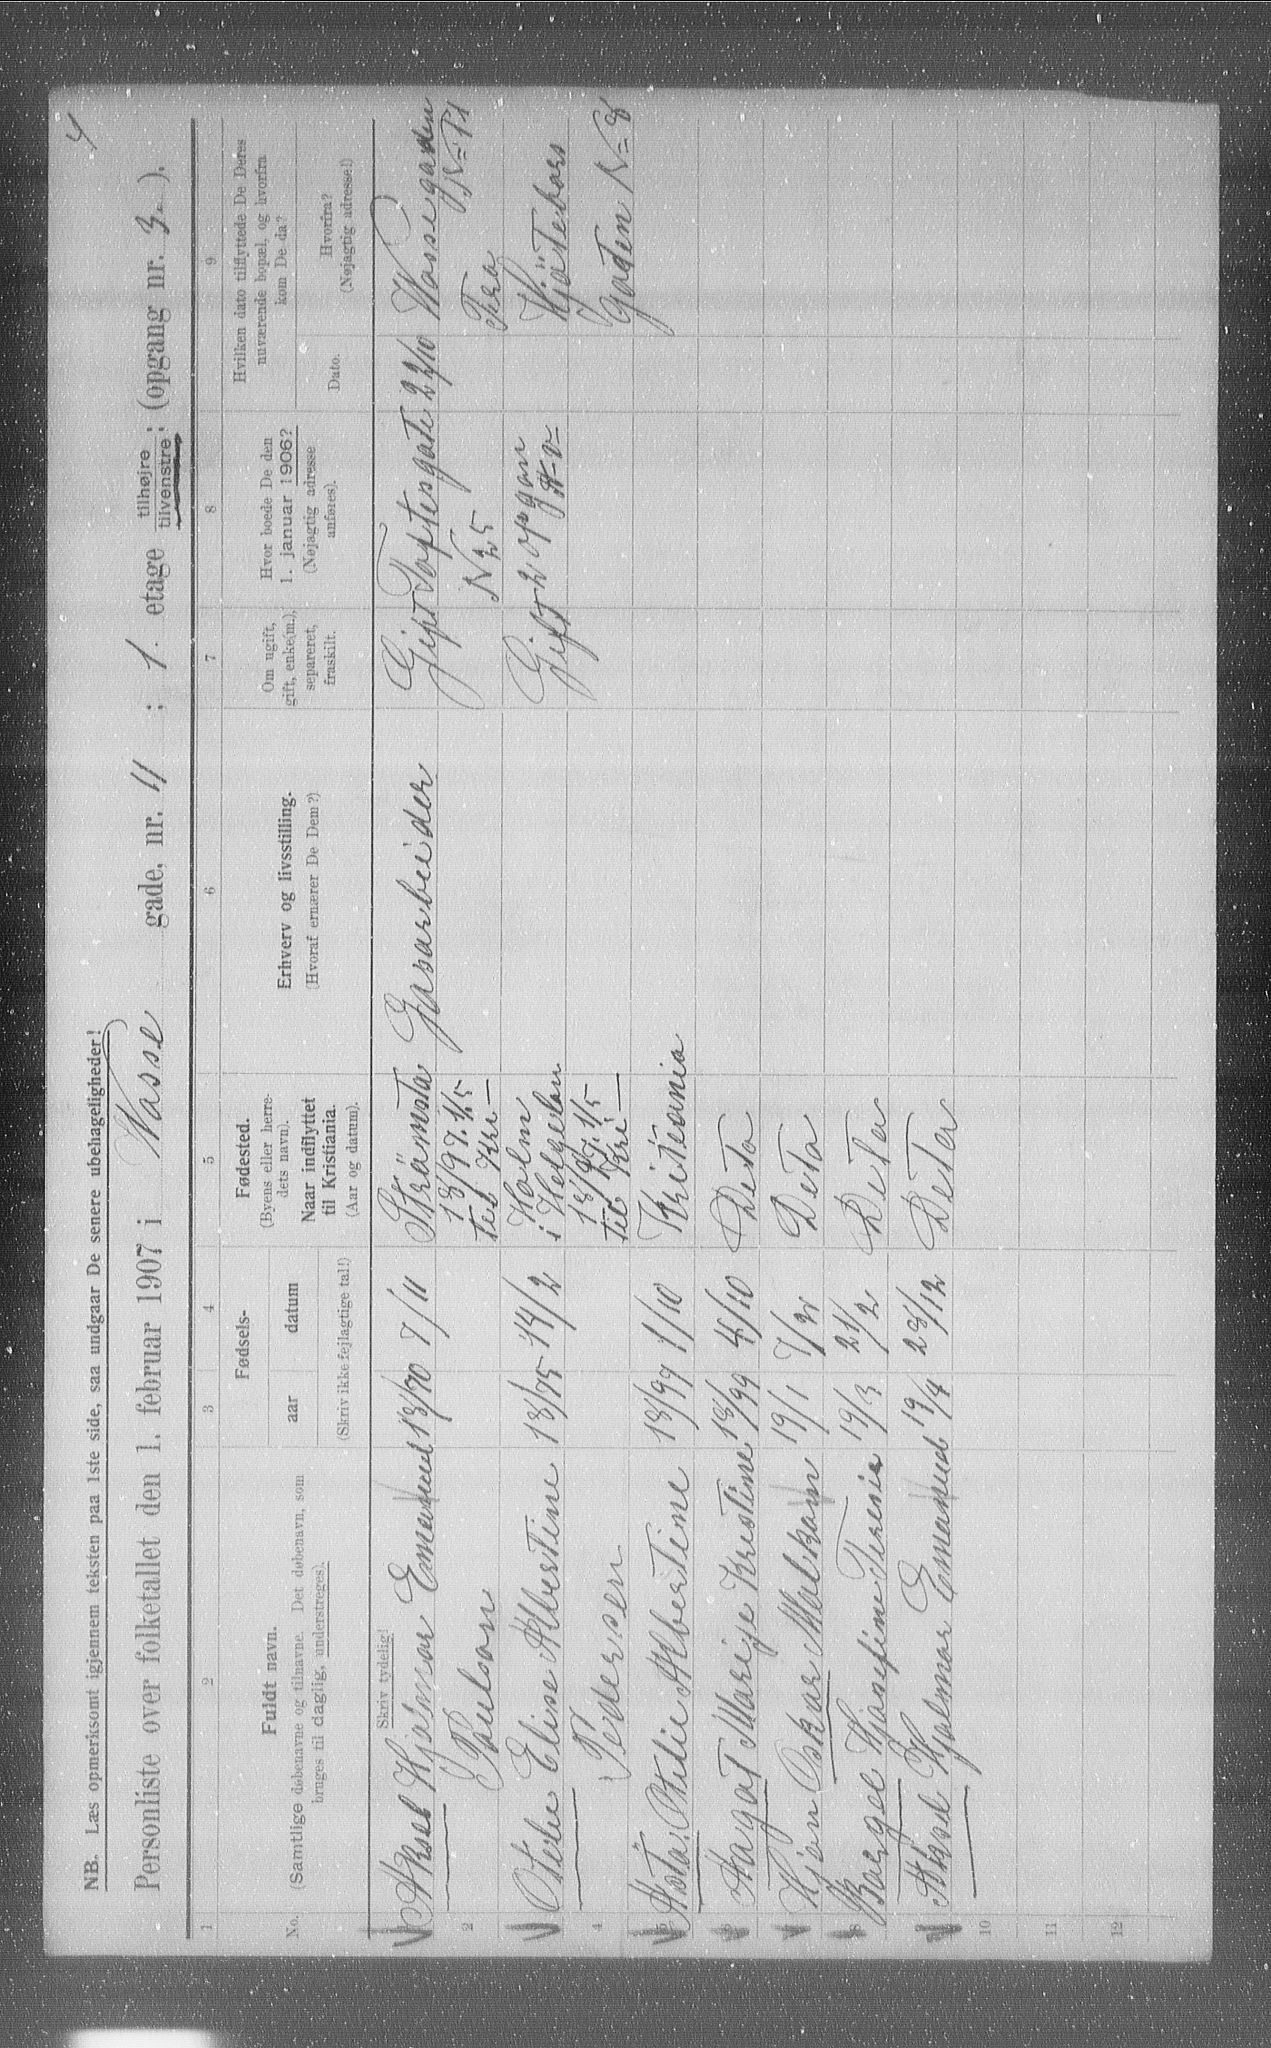 4
NB. Læs opmerksomt igjennem teksten paa 1ste side, saa undgaar De senere ubehageligheder!
Personliste over folketallet den 1. februar 1907 i Wasse gade, nr. 11 ; 1. etage tilhøjre tilvenstre ; (opgang nr. 3. ).
1 2 3 4 5 6 7 8 9
No.
Fuldt navn.
(Samtlige døbenavne og tilnavne. Det døbenavn, som
bruges til daglig, understreges).
Fødsels-
aar datum
(Skriv ikke fejlagtige tal!)
Fødested.
(Byens eller herre-
dets navn).
Naar indflyttet
til Kristiania.
(Aar og datum).
Erhverv og livsstilling.
(Hvoraf ernærer De Dem?)
Om ugift,
gift, enke(m.),
separeret,
fraskilt.
Hvor boede De den
1. januar 1906?
(Nøjagtig adresse
anføres).
Hvilken dato tilflyttede De Deres
nuværende bopæl, og hvorfra
kom De da?
Dato.
Hvorfra?
(Nøjagtig adresse!)
Skriv tydelig!
Aksel Hjalmar Emanuel 18/70 7/11 Strömsta Gasarbeider Gift Toftesgate 22/10 Wassegaden
2 Poulsen 18/97 1/5 N 25 Fra N= 11
til Kri
Otelie Elise Albertine 18/75 14/2 Holm Gift 2 opgan
4 Pedersen i Helgelan Gaten N= 8
til Kri
5 Asta Otelie Albertine 18/97 1/10 Kritiania
6 Aagot Marije Kristine 18/99 4/10 Deto
7 Hjon Oskar Malkom 19/1 7/2 Deto
8 Borgel Hjosefine 19/3 21/2 Deto
9 Aksel Hjalmar Emanuel 19/4 28/12 Deto
10
11
12